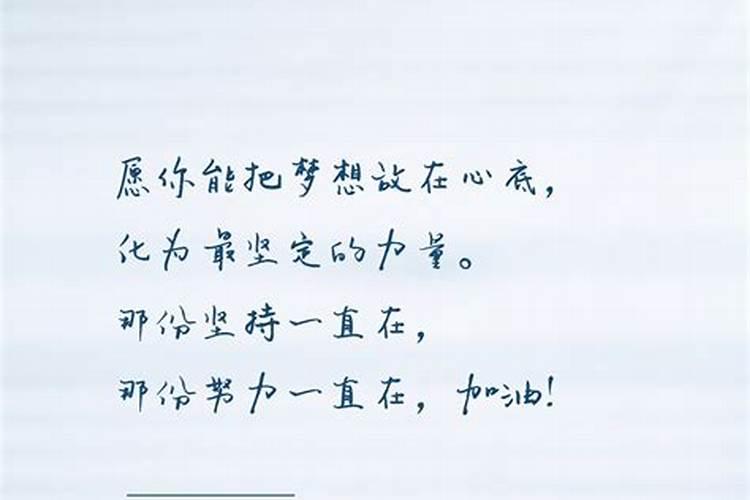 愿你能把梦想放在心底，
化为最坚定的力量。
那份坚持一直在，
那份努力一直在，加油！